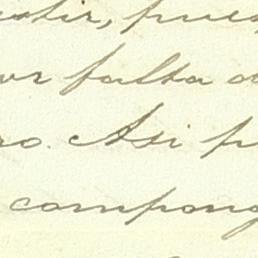 estir, pues
or falta de
ro. Asi p
compong